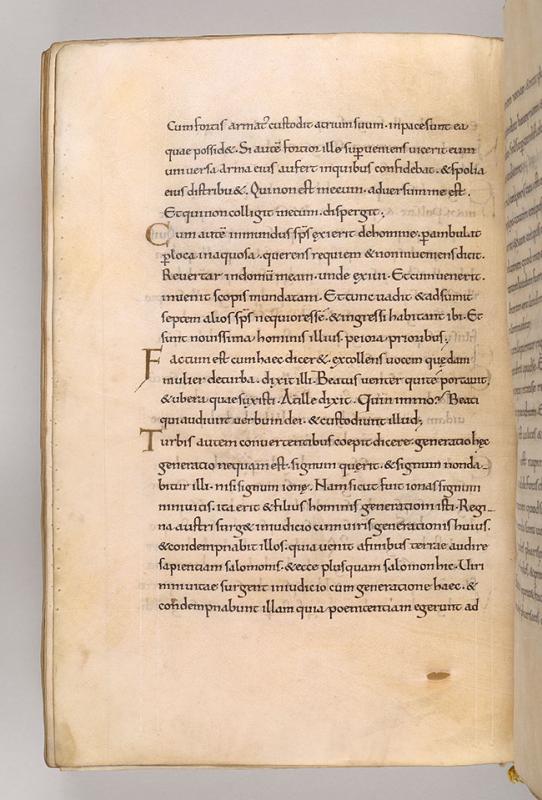 Cum fortis armat᾽ custodit atrium suum · inpace sunt ea
quae possid&. Si autē fortior illo sup̄veniens uicerit eum
universa arma eius aufert inquibus confidebat · &spolia
eius distribu&. Qui non est mecum · adversum me est.
Et qui non colligit mecum · dispergit;
Cum autē inmundus sp̄s exierit dehomine · p̄ambulat
p̄loca inaquosa · querens requiem &non inueniens dicit.
Revertar indomū meam · unde exiui · Et cum uenerit ·
inuenit scopis mundatam · Et tunc uadit &adsumit
septem alios sp̄s nequiores se · &ingressi habitant ibi · Et
sunt nouissima hominis illius peiora prioribus;
Factum est cum haec dicer& · extollens uocem quędam
mulier deturba · dixit illi · Beatus uenter quite portauit,
&ubera quae suxisti · Atille dixit · Quin immo? Beati
qui audiunt uerbum dei · &custodiunt illud;
Turbis autem concurrentibus coepit dicere · generatio hęc
generatio nequam est · signum querit · &signum nonda-
bitur illi · nisi signum ionę · Nam sicut fuit ionas signum
niniuitis · ita erit &filius hominis generationi isti · Regi-
na austri surg& iniudicio cum uiris generationis huius ·
&condempnabit illos · quia uenit afinibus terrae audire
sapientiam salomonis · &ecce plusquam salomon hic · Uiri
niniuitae surgent iniudicio cum generatione haec · &
condempnabunt illam quia poenitentiam egerunt ad